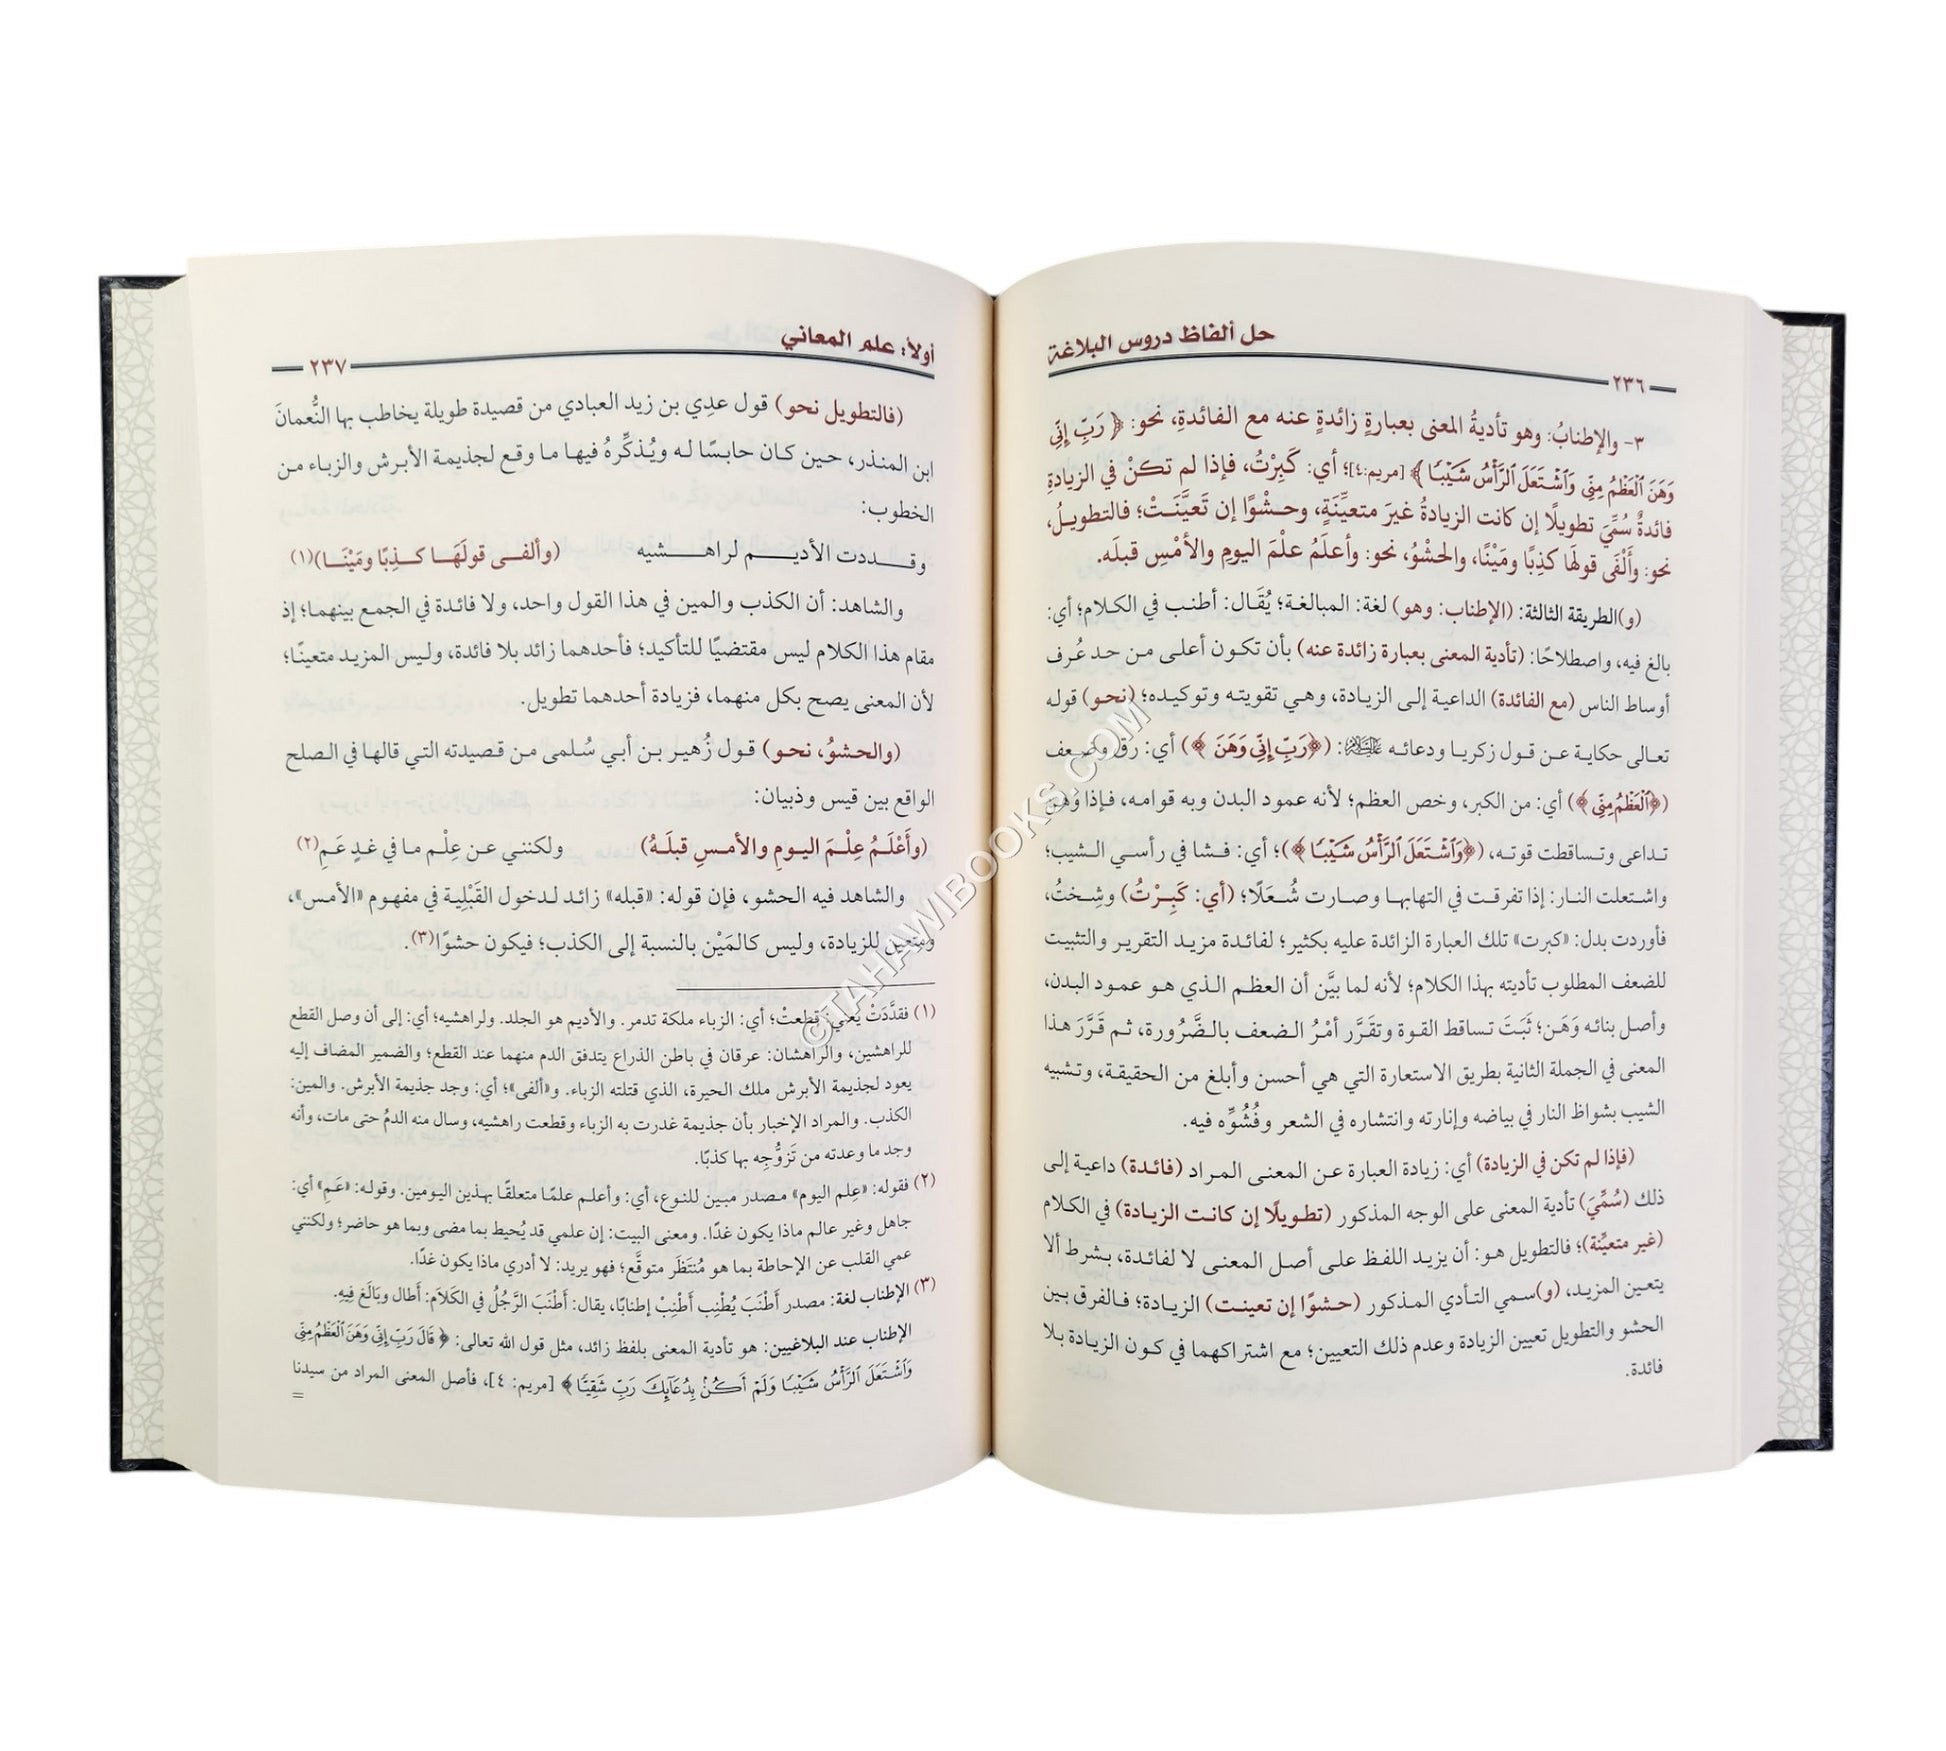 حل ألفاظ دروس البلاغة
٢٣٦
٣- والإطنابُ: وهو تأديةُ المعنى بعبارةٍ زائدةٍ عنه مع الفائدةِ، نحو: ﴿ رَبِّ إِنِّي
وَهَنَ ٱلْعَظْمُ مِنِّي وَٱشْتَعَلَ ٱلرَّأْسُ شَيْبًا ﴾ [مريم:٤]؛ أي: كَبِرْتُ، فإذا لم تكنْ في الزيادةِ
فائدةٌ سُمِّيَ تطويلًا إن كانت الزيادةُ غيرَ متعيِّنَةٍ، وحشْوًا إن تَعيَّنَتْ؛ فالتطويلُ،
نحو: وأَلْفَى قولَها كَذِبًا ومَيْنًا، والحشْوُ، نحو: وأعلَمُ علْمَ اليومِ والأمْسِ قبلَه.
(و)الطريقة الثالثة: (الإطناب: وهو) لغة: المبالغة؛ يُقَال: أطنب في الكلام؛ أي:
بالغ فيه، واصطلاحًا: (تأدية المعنى بعبارة زائدة عنه) بأن تكون أعلى من حد عُرف
أوساط الناس (مع الفائدة) الداعية إلى الزيادة، وهي تقويته وتوكيده؛ (نحو) قوله
تعالى حكاية عن قول زكريا ودعائه عليه السلام: (﴿رَبِّ إِنِّي وَهَنَ ﴾) أي: رق وضعف
(﴿ٱلْعَظْمُ مِنِّي ﴾) أي: من الكبر، وخص العظم؛ لأنه عمود البدن وبه قوامه، فإذا وهن
تداعى وتساقطت قوته، (﴿وَٱشْتَعَلَ ٱلرَّأْسُ شَيْبًا ﴾)؛ أي: فشا في رأسي الشيب؛
واشتعلت النار: إذا تفرقت في التهابها وصارت شُعَلًا؛ (أي: كَبِرْتُ) وشِختُ،
فأوردت بدل: «كبرت» تلك العبارة الزائدة عليه بكثير؛ لفائدة مزيد التقرير والتثبيت
للضعف المطلوب تأديته بهذا الكلام؛ لأنه لما بيَّن أن العظم الذي هو عمود البدن،
وأصل بنائه وَهَن؛ ثَبَتَ تساقط القوة وتقَرَّر أمْرُ الضعف بالضَّرُورة، ثم قَرَّرَ هذا
المعنى في الجملة الثانية بطريق الاستعارة التي هي أحسن وأبلغ من الحقيقة، وتشبيه
الشيب بشواظ النار في بياضه وإنارته وانتشاره في الشعر وفُشُوِّه فيه.
(فإذا لم تكن في الزيادة) أي: زيادة العبارة عن المعنى المراد (فائدة) داعية إلى
ذلك (سُمِّيَ) تأدية المعنى على الوجه المذكور (تطويلًا إن كانت الزيادة) في الكلام
(غير متعيِّنة)؛ فالتطويل هو: أن يزيد اللفظ على أصل المعنى لا لفائدة، بشرط ألا
يتعين المزيد، (و)سمي التأدي المذكور (حشوًا إن تعينت) الزيادة؛ فالفرق بين
الحشو والتطويل تعيين الزيادة وعدم ذلك التعيين؛ مع اشتراكهما في كون الزيادة بلا
فائدة.
أولًا: علم المعاني
٢٣٧
(فالتطويل نحو) قول عدِي بن زيد العبادي من قصيدة طويلة يخاطب بها النُّعمانَ
ابن المنذر، حين كان حابسًا له ويُذكِّرهُ فيها ما وقع لجذيمة الأبرش والزباء من
الخطوب:
وقددت الأديم لراهشيه (وألفى قولَهَا كذِبًا ومَيْنَا)(١)
والشاهد: أن الكذب والمين في هذا القول واحد، ولا فائدة في الجمع بينهما؛ إذ
مقام هذا الكلام ليس مقتضيًا للتأكيد؛ فأحدهما زائد بلا فائدة، وليس المزيد متعينًا؛
لأن المعنى يصح بكل منهما، فزيادة أحدهما تطويل.
(والحشوُ، نحو) قول زُهير بن أبي سُلمى من قصيدته التي قالها في الصلح
الواقع بين قيس وذبيان:
(وأَعْلَمُ عِلْمَ اليومِ والأمسِ قبلَهُ) ولكنني عن عِلْم ما في غدٍ عَمِ(٢)
والشاهد فيه الحشو، فإن قوله: «قبله» زائد لدخول القَبْلِية في مفهوم «الأمس»،
ومتعين للزيادة، وليس كالمَيْن بالنسبة إلى الكذب؛ فيكون حشوًا(٣).
(١) فقدَّدَتْ يعني: قطعتْ؛ أي: الزباء ملكة تدمر. والأديم هو الجلد. ولراهشيه؛ أي: إلى أن وصل القطع
للراهشين، والراهشان: عرقان في باطن الذراع يتدفق الدم منهما عند القطع؛ والضمير المضاف إليه
يعود لجذيمة الأبرش ملك الحيرة، الذي قتلته الزباء. و«ألفى»؛ أي: وجد جذيمة الأبرش. والمين:
الكذب. والمراد الإخبار بأن جذيمة غدرت به الزباء وقطعت راهشيه، وسال منه الدمُ حتى مات، وأنه
وجد ما وعدته من تَزوُّجِه بها كذبًا.
(٢) فقوله: «عِلم اليوم» مصدر مبين للنوع، أي: وأعلم علمًا متعلقًا بهذين اليومين. وقوله: «عَمِ» أي:
جاهل وغير عالم ماذا يكون غدًا. ومعنى البيت: إن علمي قد يُحيط بما مضى وبما هو حاضر؛ ولكنني
عمي القلب عن الإحاطة بما هو مُنتَظَر متوقَّع؛ فهو يريد: لا أدري ماذا يكون غدًا.
(٣) الإطناب لغة: مصدر أَطْنَبَ يُطْنِب أَطْنِبْ إطنابًا، يقال: أَطْنَبَ الرَّجُلُ في الكَلَام: أطال وبَالَغ فِيهِ.
الإطناب عند البلاغيين: هو تأدية المعنى بلفظ زائد، مثل قول الله تعالى: ﴿ قَالَ رَبِّ إِنِّي وَهَنَ ٱلْعَظْمُ مِنِّي
وَٱشْتَعَلَ ٱلرَّأْسُ شَيْبًا وَلَمْ أَكُنْ بِدُعَآئِكَ رَبِّ شَقِيًّا ﴾ [مريم: ٤]، فأصل المعنى المراد من سيدنا
=
©TAHAWIBOOKS.COM